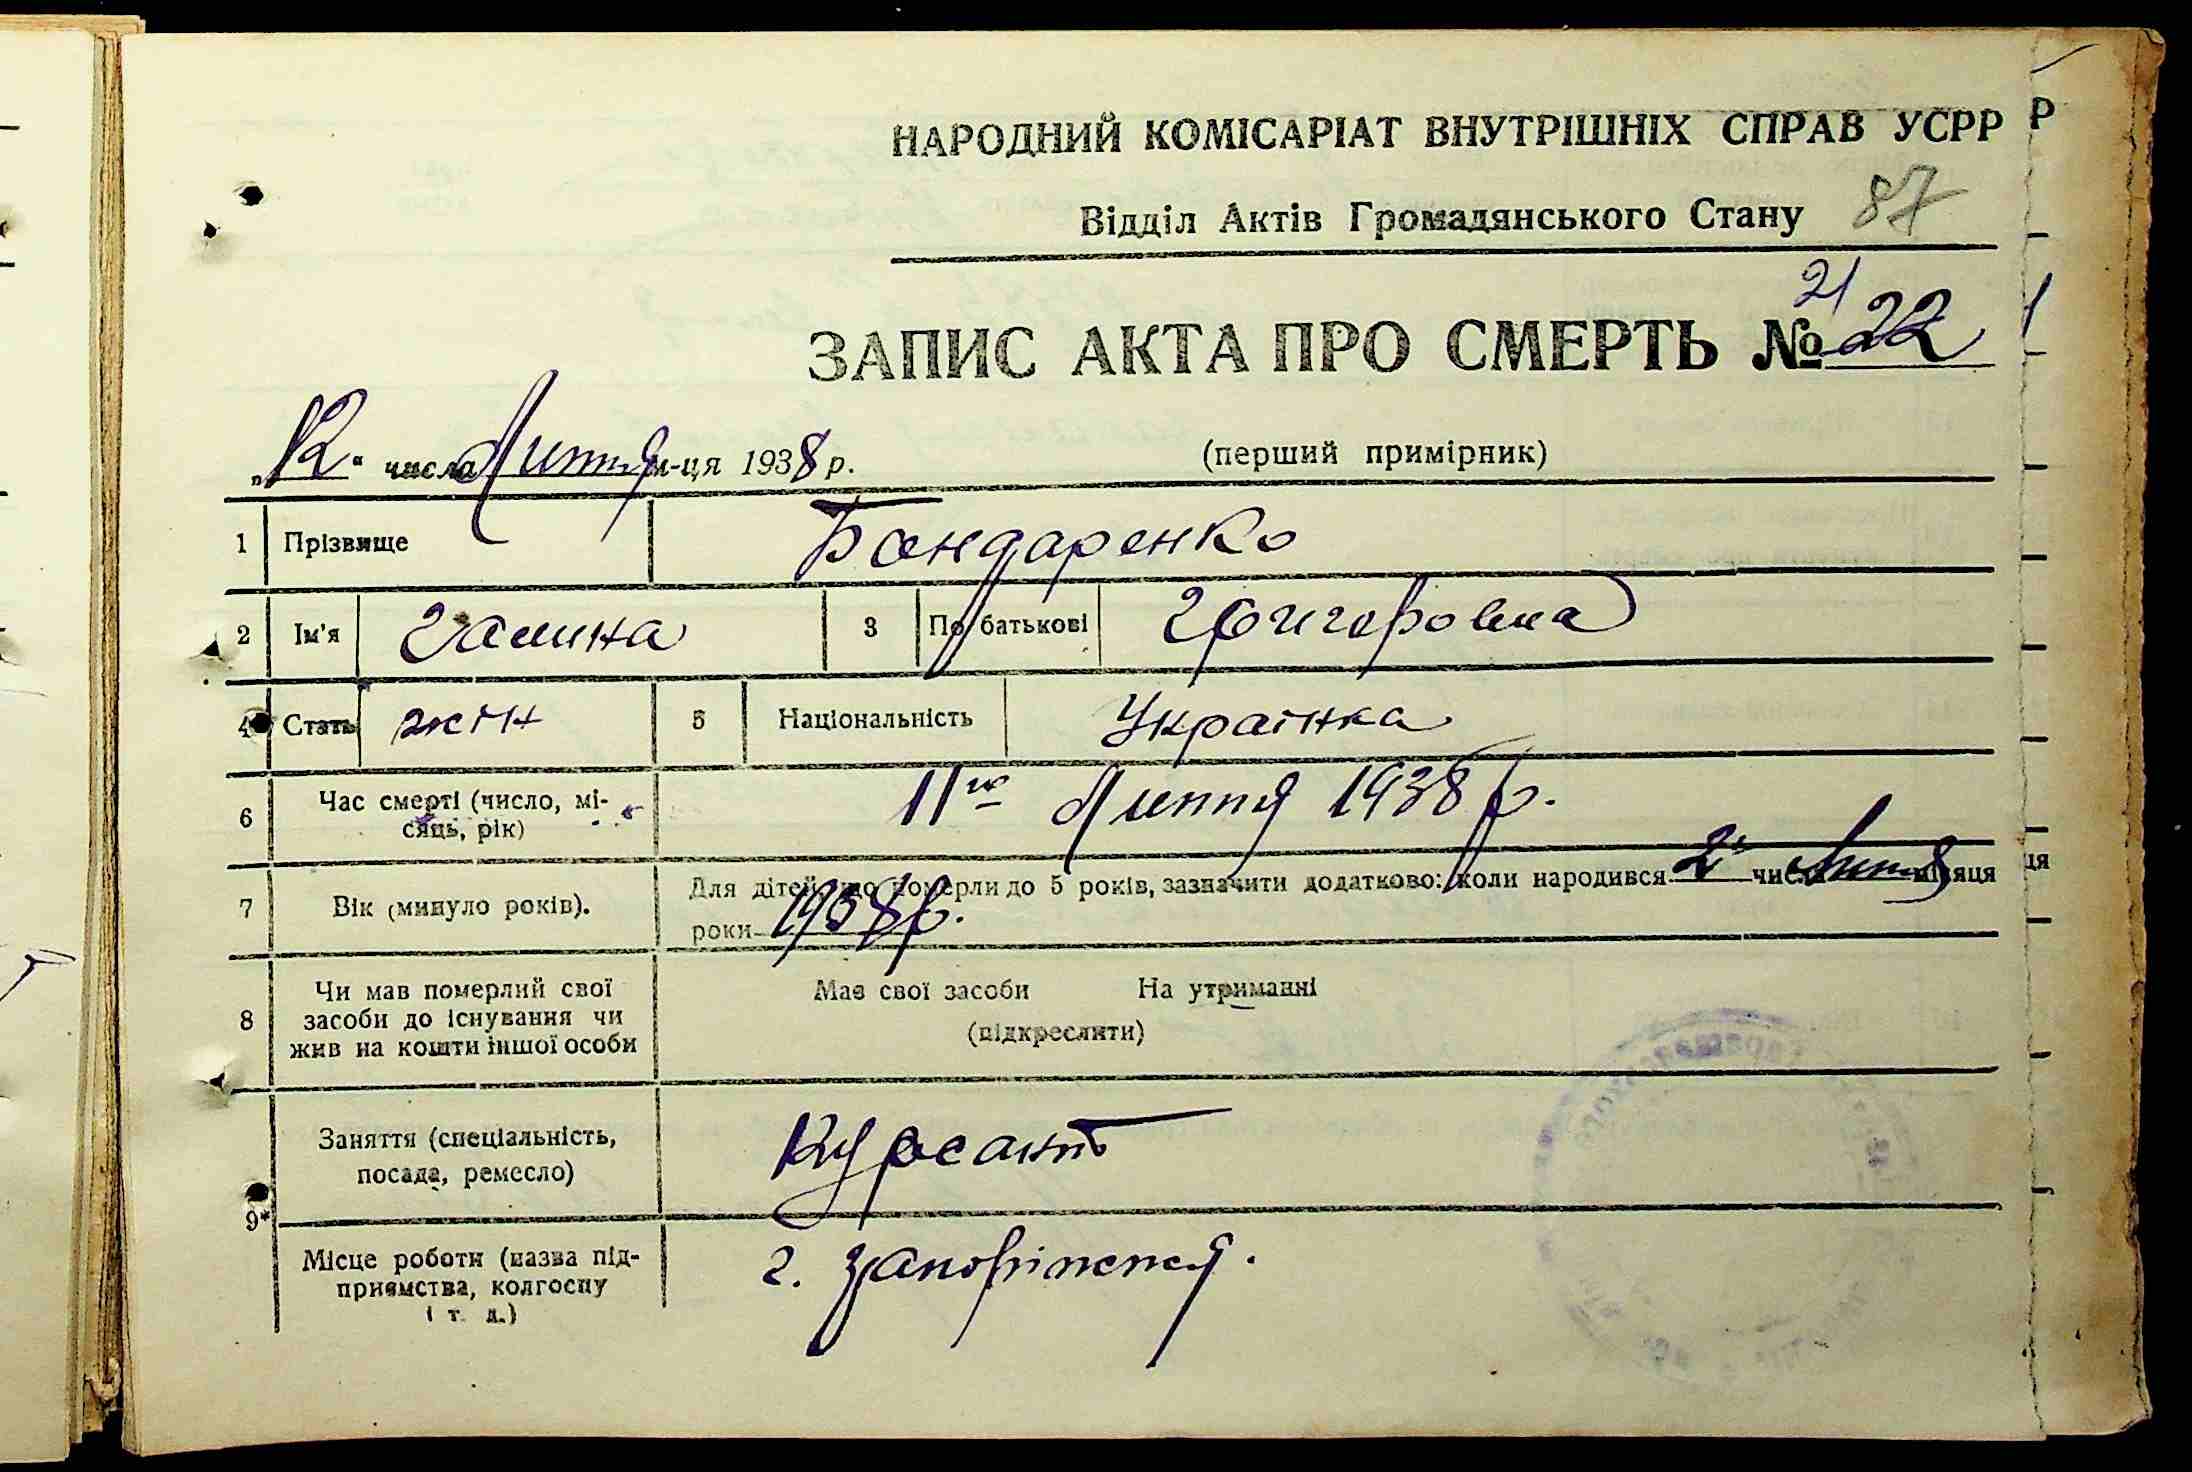 НАРОДНИЙ КОМІСАРІАТ ВНУТРІШНІХ СПРАВ УСРР Р
Відділ Актів Громадянського Стану 87
21
ЗАПИС АКТА ПРО СМЕРТЬ № 22
„12“ числа Липня м-ця 1938 р. (перший примірник)
1 Прізвище Бондаренко
2 Ім'я Галина 3 По батькові Григоровна
4 Стать жін 5 Національність Українка
6 Час смерті (число, мі-
сяць, рік) 11го Липня 1938 р.
7 Вік (минуло років). Для дітей, що померли до 5 років, зазначити додатково: коли народився 2 числа Липня місяця ця
роки 1938 р.
8 Чи мав померлий свої
засоби до існування чи
жив на кошти іншої особи
Має свої засоби На утриманні
(підкреслити)
9*
Заняття (спеціальність,
посада, ремесло) Курсант
Місце роботи (назва під-
приємства, колгоспу
і т. д.) г. Запоріжжя.